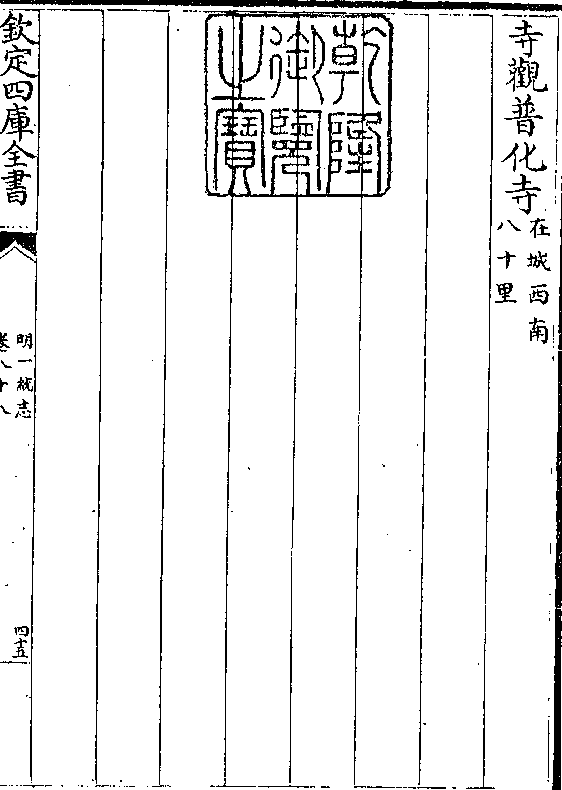 寺觀普化寺在城西南
八十里
乾隆
御覽
之寶
欽定四庫全書
明一統志
卷八十八
四十五